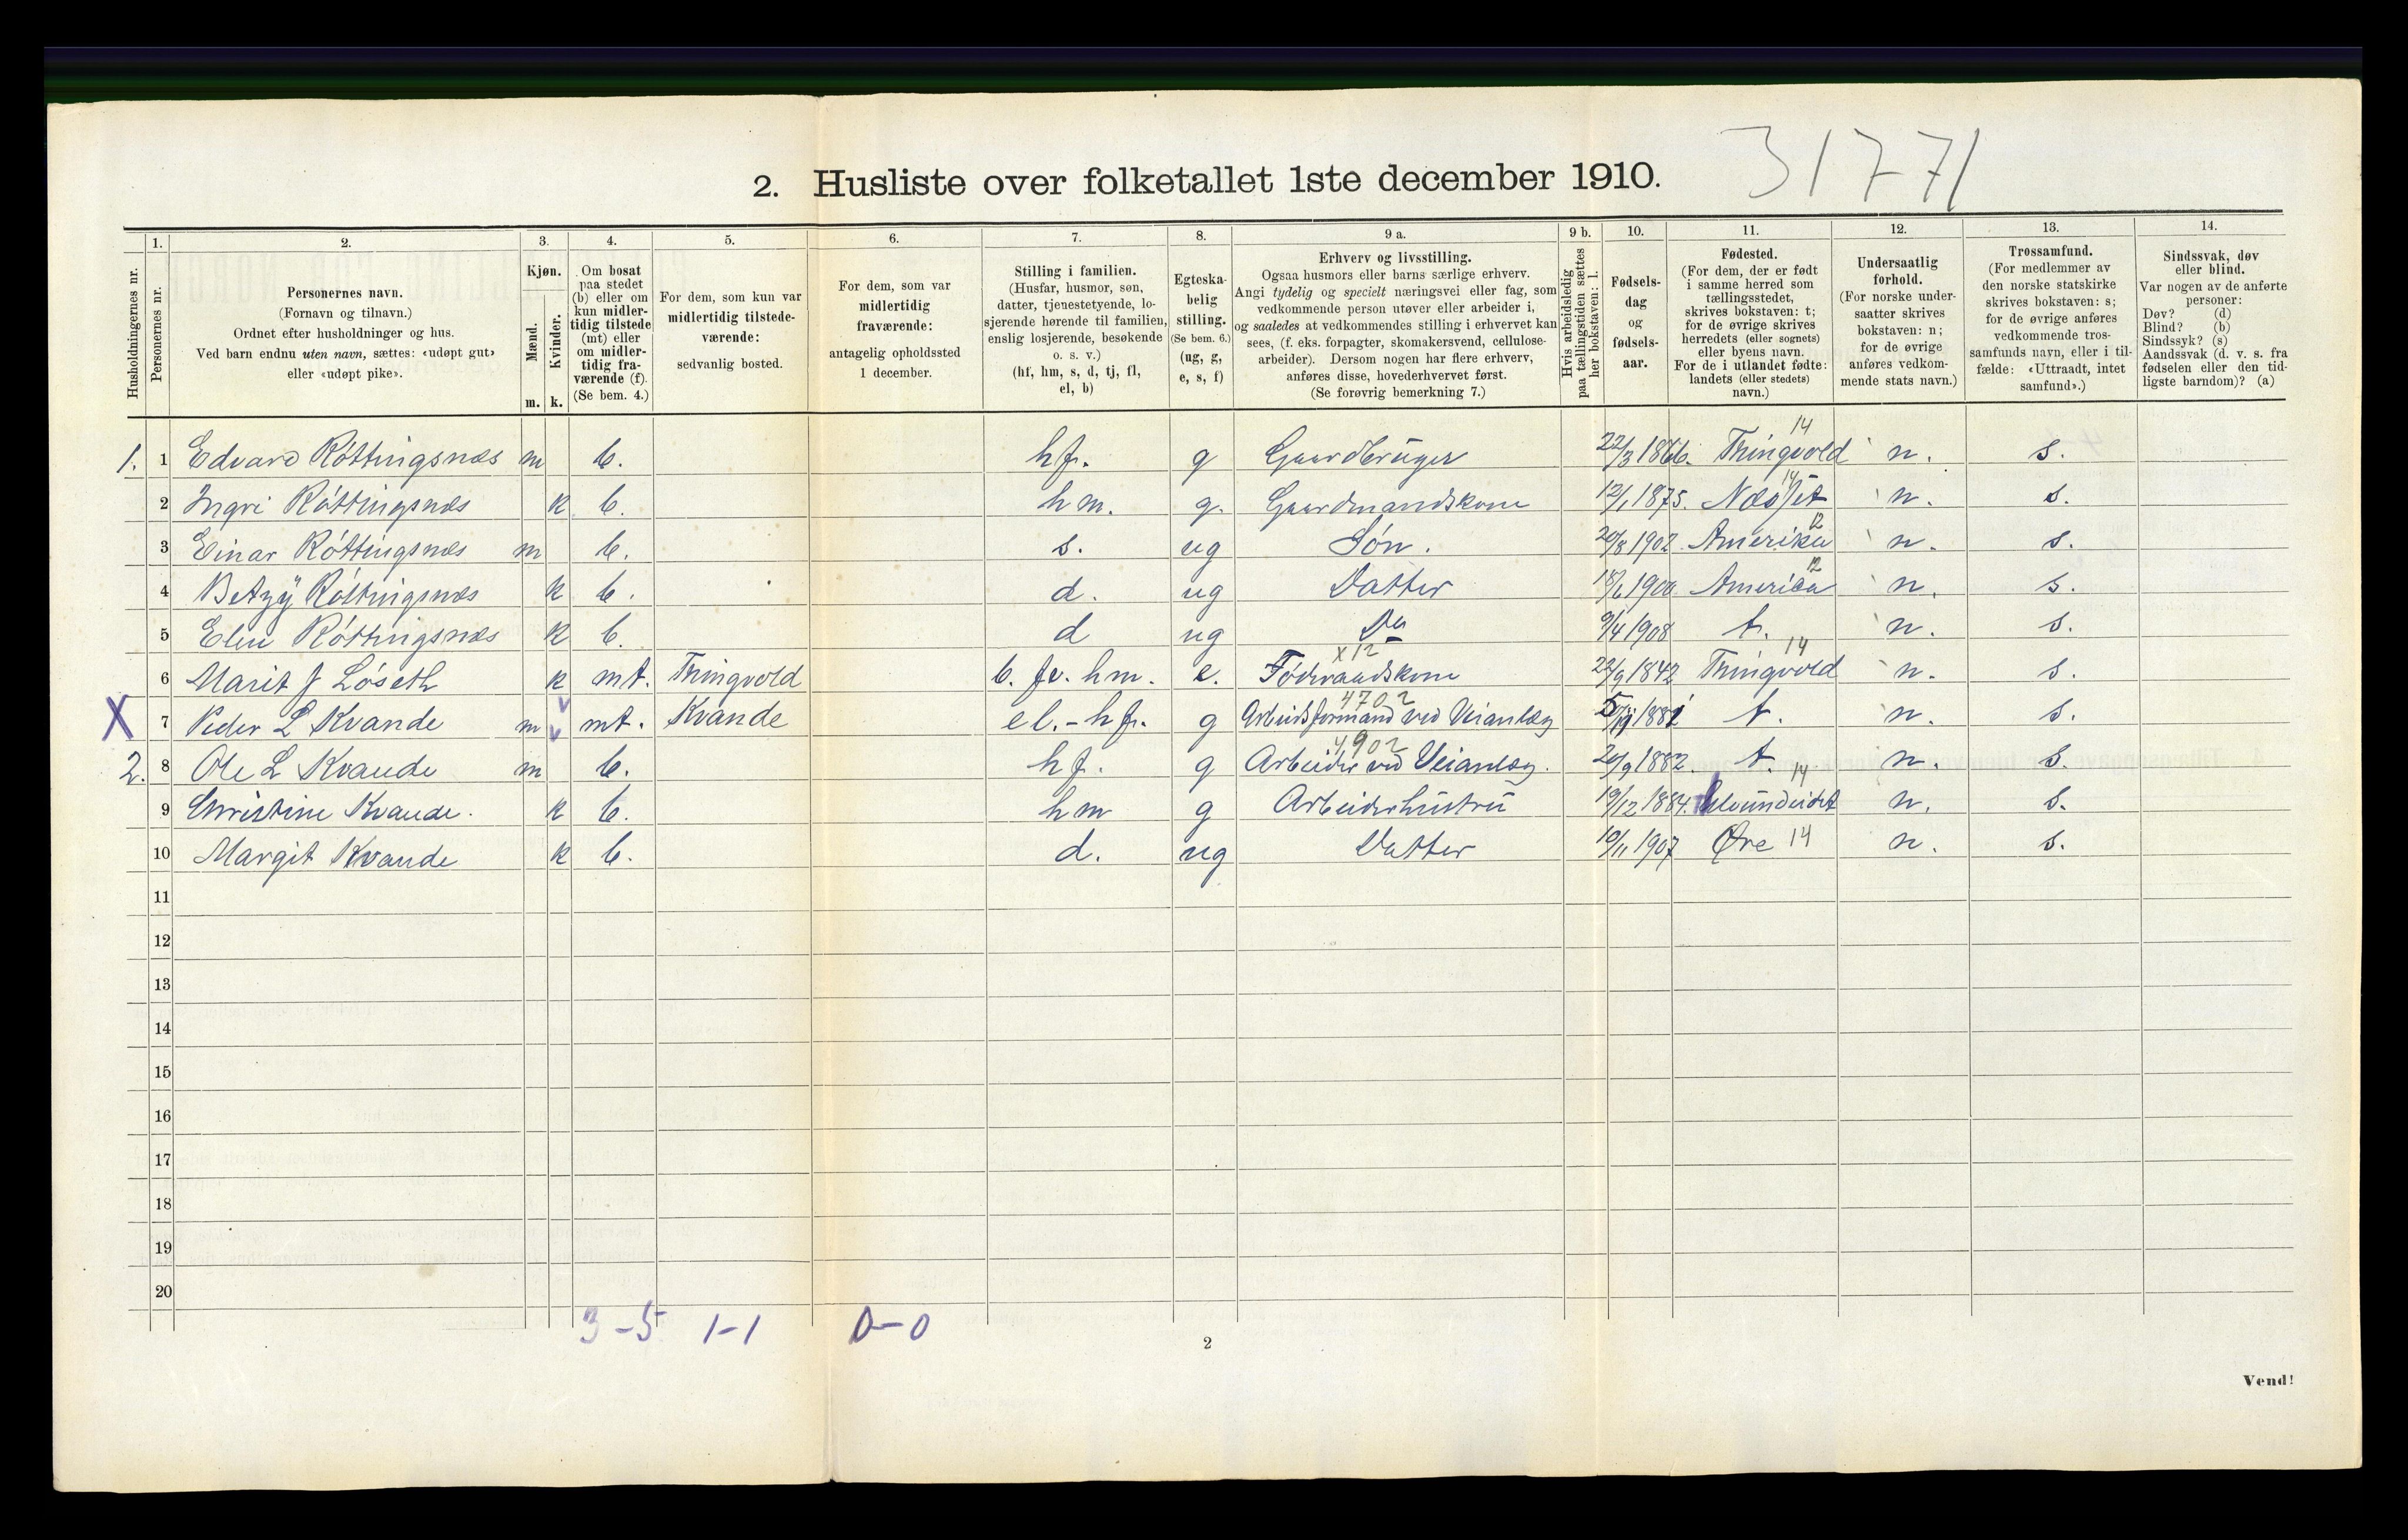 31771
2. Husliste over folketallet 1ste december 1910.
Husholdningernes nr.
1.
Personernes nr.
2.
Personernes navn.
(Fornavn og tilnavn.)
Ordnet efter husholdninger og hus.
Ved barn endnu uten navn, sættes: «udøpt gut»
eller «udøpt pike».
3.
Kjøn.
Mænd. Kvinder.
m. k.
4.
Om bosat
paa stedet
(b) eller om
kun midler-
tidig tilstede
(mt) eller
om midler-
tidig fra-
værende (f).
(Se bem. 4.)
5.
For dem, som kun var
midlertidig tilstede-
værende:
sedvanlig bosted.
6.
For dem, som var
midlertidig
fraværende:
antagelig opholdssted
1 december.
7.
Stilling i familien.
(Husfar, husmor, søn,
datter, tjenestetyende, lo-
sjerende hørende til familien,
enslig losjerende, besøkende
o. s. v.)
(hf, hm, s, d, tj, fl,
el, b)
8.
Egteska-
belig
stilling.
(Se bem. 6.)
(ug, g,
e, s, f)
9 a.
Erhverv og livsstilling.
Ogsaa husmors eller barns særlige erhverv.
Angi tydelig og specielt næringsvei eller fag, som
vedkommende person utøver eller arbeider i,
og saaledes at vedkommendes stilling i erhvervet kan
sees, (f. eks. forpagter, skomakersvend, cellulose-
arbeider). Dersom nogen har flere erhverv,
anføres disse, hovederhvervet først.
(Se forøvrig bemerkning 7.)
9 b.
Hvis arbeidsledig
paa tællingstiden sættes
her bokstaven: l.
10.
Fødsels-
dag
og
fødsels-
aar.
11.
Fødested.
(For dem, der er født
i samme herred som
tællingsstedet,
skrives bokstaven: t;
for de øvrige skrives
herredets (eller sognets)
eller byens navn.
For de i utlandet fødte:
landets (eller stedets)
navn.)
12.
Undersaatlig
forhold.
(For norske under-
saatter skrives
bokstaven: n;
for de øvrige
anføres vedkom-
mende stats navn.)
13.
Trossamfund.
(For medlemmer av
den norske statskirke
skrives bokstaven: s;
for de øvrige anføres
vedkommende tros-
samfunds navn, eller i til-
fælde: «Uttraadt, intet
samfund».)
14.
Sindssvak, døv
eller blind.
Var nogen av de anførte
personer:
Døv? (d)
Blind? (b)
Sindssyk? (s)
Aandssvak (d. v. s. fra
fødselen eller den tid-
ligste barndom)? (a)
1. 1 Edvard Röttingsnæs m b. hf. g Gaardbruger 22/3 1866. Thingvold 14 n. s.
2 Ingri Röttingsnæs k b. hm. g. Gaardmandskone 12/1 1875. Næsset 14 n. s.
3 Einar Röttingsnæs m b. s. ug Søn. 20/8 1902 Amerika 12 n. s.
4 Betzy Röttingsnæs k b. d. ug Datter America 12 n. s.
5 Elen Röttingsnæs k b. d ug Do 9/4 1908 t. n. s.
6 Marit J Löseth k mt. Thingvold b. fv. hm. e. x12 Föderaadskone 22/9 1842 Thingvold 14 n. s.
X 7 Peder L Kvande m mt. Kvande el.-hf. g 4702 Arbeidsformand ved Veianlæg 1881 t. n. s.
2. 8 Ole L Kvande m b. hf. g 4902 Arbeider ved Veianlæg. 20/9 1882. t. n. s.
9 Christine Kvande. k b. hm g Arbeiderhustru 19/12 1884. 14 n. s.
10 Margit Kvande k b. d. ug Datter 10/11 1907 Øre 14 n. s.
11
12
13
14
15
16
17
18
19
20
3-5 1-1 0-0
2
Vend!